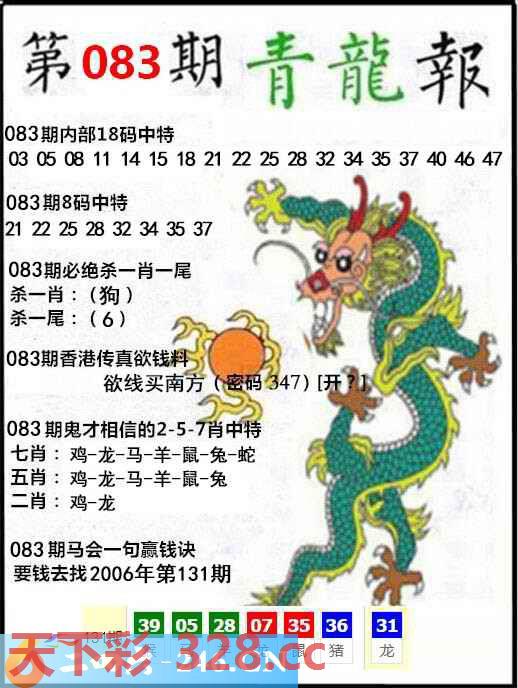 第083期青龍報
083期内部18码中特
03 05 08 11 14 15 18 21 22 25 28 32 34 35 37 40 46 47
083期8码中特
21 22 25 28 32 34 35 37
083期必绝杀一肖一尾
杀一肖：（狗）
杀一尾：（6）
083期香港传真欲钱料
欲线买南方（密码 347）[开？]
083期鬼才相信的2-5-7肖中特
七肖：鸡-龙-马-羊-鼠-兔-蛇
五肖：鸡-龙-马-羊-鼠-兔
二肖：鸡-龙
083期马会一句赢钱诀
要钱去找2006年第131期
131期 39 05 28 07 35 36 31
猴 鼠 猪 龙
天下彩-328.cc